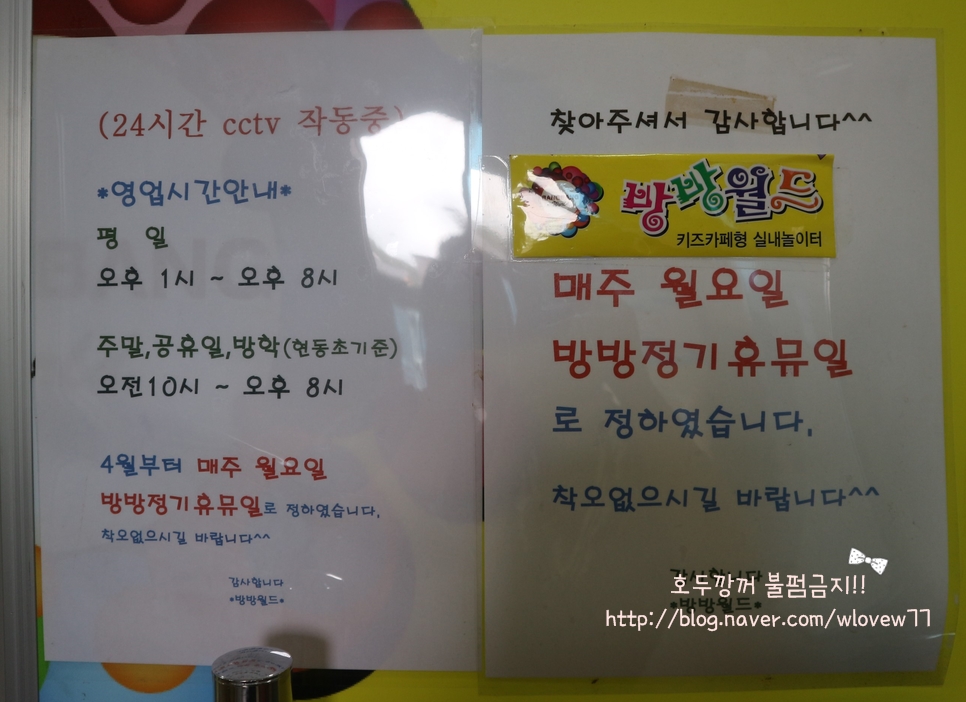 (24시간 cctv 작동중)
*영업시간안내*
평 일
오후 1시 ~ 오후 8시
주말,공휴일,방학(현동초기준)
오전10시 ~ 오후 8시
4월부터 매주 월요일
방방정기휴뮤일로 정하였습니다.
착오없으시길 바랍니다^^
감사합니다
*방방월드*
찾아주셔서 감사합니다^^
방방월드
키즈카페형 실내놀이터
매주 월요일
방방정기휴뮤일
로 정하였습니다.
착오없으시길 바랍니다^^
감사합니다
*방방월드*
호두깡꺼 불펌금지!!
http://blog.naver.com/wlovew77